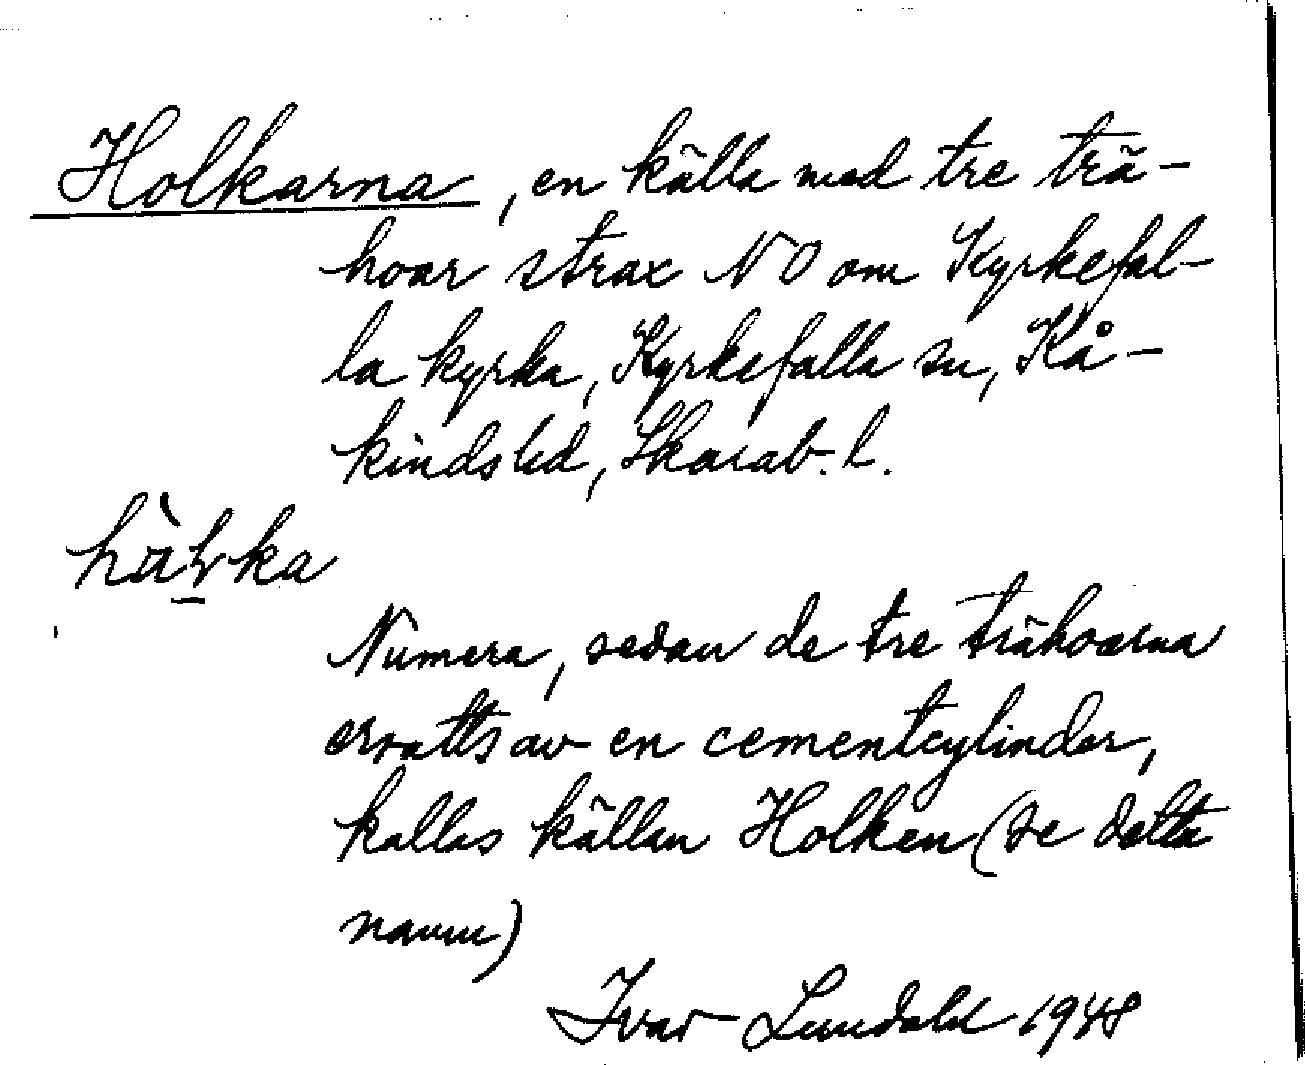 Holkarna, en källa med tre trä-
hoar strax NO om Kyrkefal-
la kyrka, Kyrkefalla sn, Kå-
kinds hd, Skarab. l.
Numera, sedan de tre trähoarna
ersatts av en cementcylinder,
kallas källan Holken (se detta
namn)
Ivar Lundahl 1948